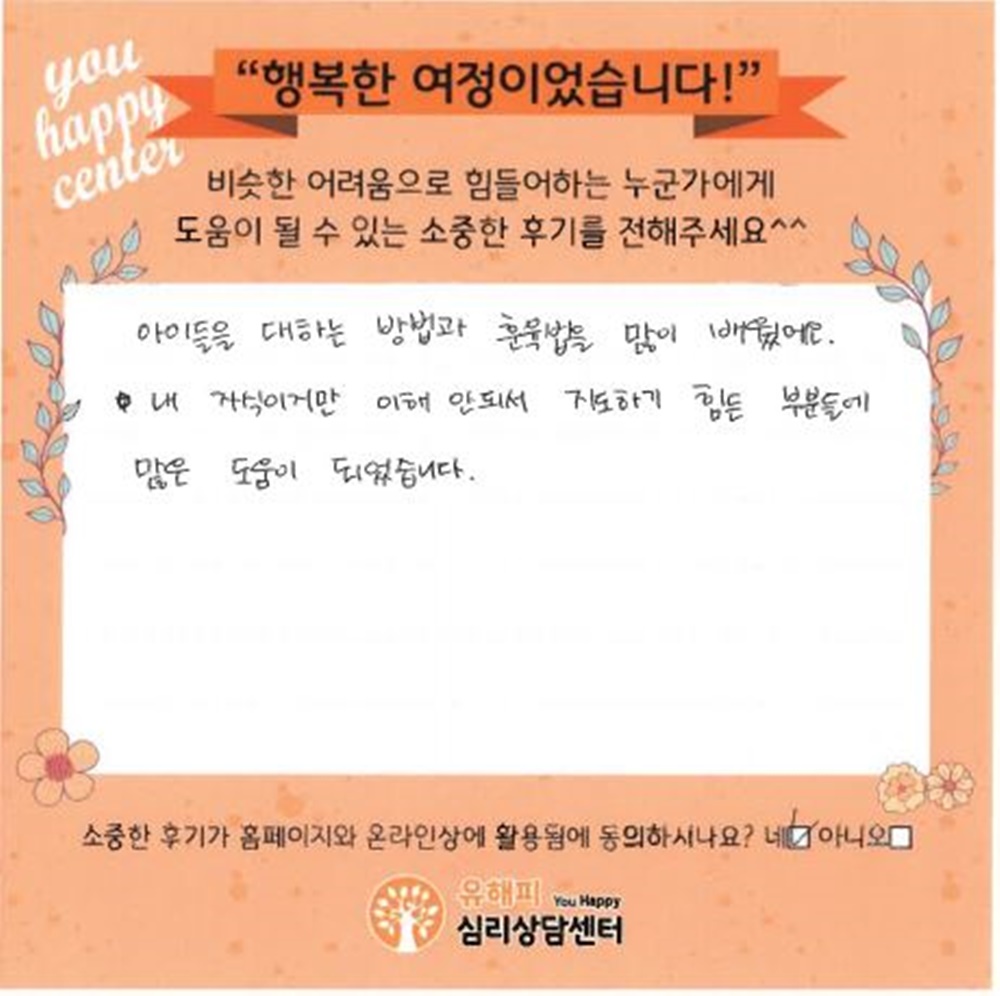 you
happy
center
“행복한 여정이었습니다!”
비슷한 어려움으로 힘들어하는 누군가에게
도움이 될 수 있는 소중한 후기를 전해주세요^^
아이들을 대하는 방법과 훈육법을 많이 배웠어요.
내 자식이지만 이해 안되서 지도하기 힘든 부분들에
많은 도움이 되었습니다.
소중한 후기가 홈페이지와 온라인상에 활용됨에 동의하시나요? 네☑ 아니오☐
유해피 You Happy
심리상담센터